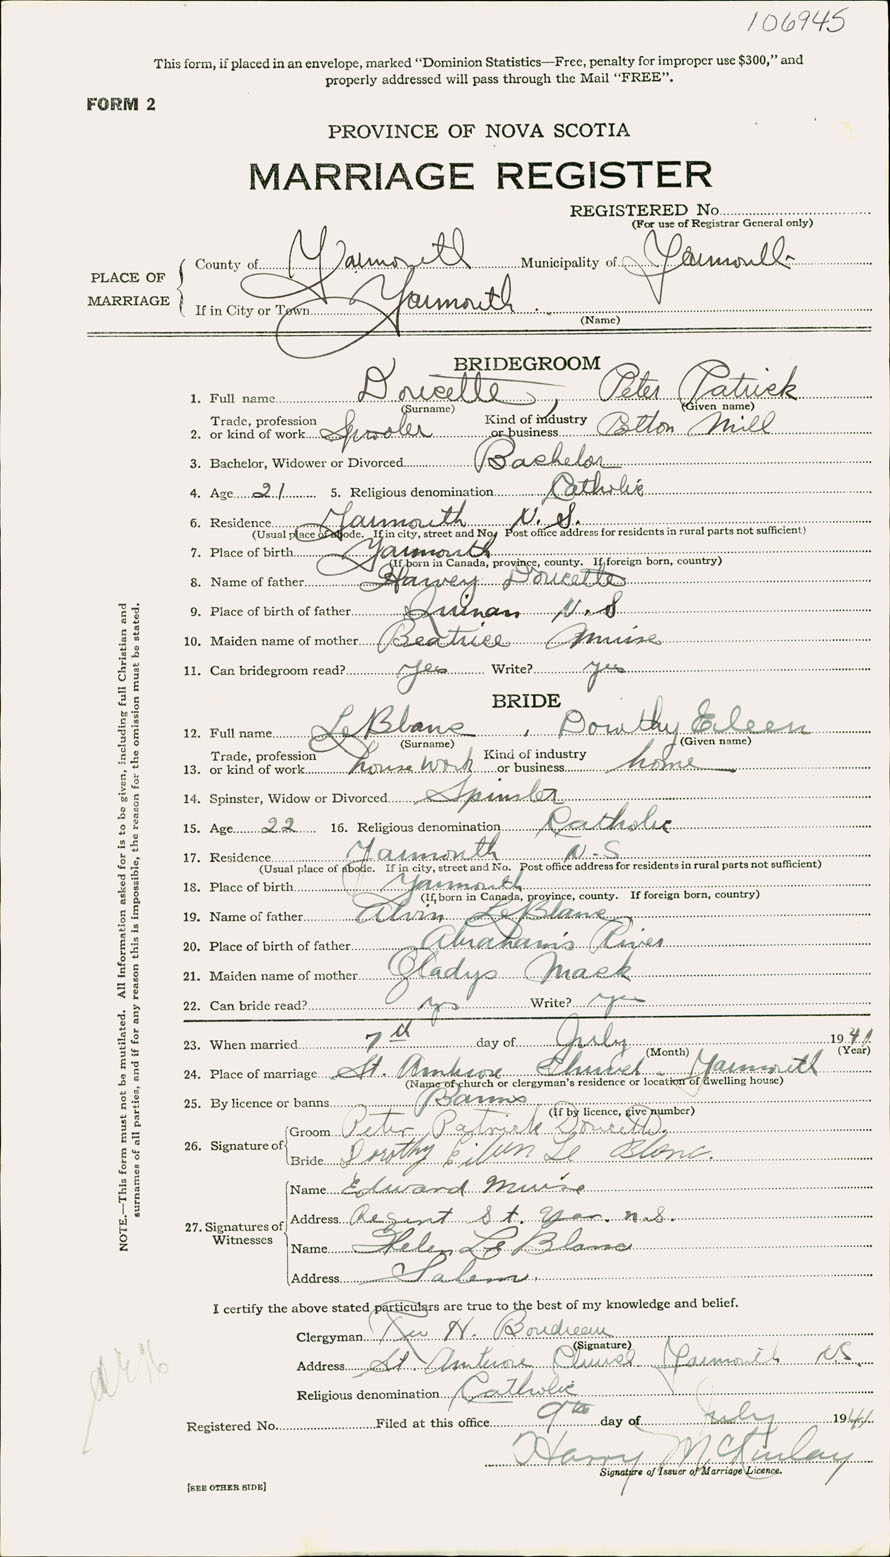 106945
This form, if placed in an envelope, marked "Dominion Statistics—Free, penalty for improper use $300," and
properly addressed will pass through the Mail "FREE".
FORM 2
PROVINCE OF NOVA SCOTIA
MARRIAGE REGISTER
REGISTERED No.
(For use of Registrar General only)
PLACE OF MARRIAGE
County of Yarmouth Municipality of Yarmouth
If in City or Town Yarmouth
(Name)
BRIDEGROOM
1. Full name Doucette, Peter Patrick
(Surname) (Given name)
2. Trade, profession or kind of work Spooler Kind of industry or business Cotton Mill
3. Bachelor, Widower or Divorced Bachelor
4. Age 21 5. Religious denomination Catholic
6. Residence Yarmouth N.S.
(Usual place of abode. If in city, street and No. Post office address for residents in rural parts not sufficient)
7. Place of birth Yarmouth
(If born in Canada, province, county. If foreign born, country)
8. Name of father Harvey Doucette
9. Place of birth of father Quinan N.S
10. Maiden name of mother Beatrice Muise
11. Can bridegroom read? yes Write? yes
BRIDE
12. Full name LeBlanc, Dorothy Eileen
(Surname) (Given name)
13. Trade, profession or kind of work housework Kind of industry or business home
14. Spinster, Widow or Divorced Spinster
15. Age 22 16. Religious denomination Catholic
17. Residence Yarmouth N.S
(Usual place of abode. If in city, street and No. Post office address for residents in rural parts not sufficient)
18. Place of birth Yarmouth
(If born in Canada, province, county. If foreign born, country)
19. Name of father Alvin LeBlanc
20. Place of birth of father Abraham's River
21. Maiden name of mother Gladys Mask
22. Can bride read? yes Write? yes
23. When married 7th day of July 1941
(Month) (Year)
24. Place of marriage St. Ambrose Church - Yarmouth
(Name of church or clergyman's residence or location of dwelling house)
25. By licence or banns Banns
(If by licence, give number)
26. Signature of
Groom Peter Patrick Doucette.
Bride Dorothy Eileen Le Blanc.
27. Signatures of Witnesses
Name Edward Muise
Address Regent St. Yar. N.S.
Name Helen LeBlanc
Address Salem.
I certify the above stated particulars are true to the best of my knowledge and belief.
Clergyman Rev H. Boudreau
(Signature)
Address St. Ambrose Church Yarmouth N.S.
Religious denomination Catholic
Registered No. Filed at this office 9th day of July 1941
Harry McKinlay
Signature of Issuer of Marriage Licence.
[SEE OTHER SIDE]
NOTE.—This form must not be mutilated. All information asked for is to be given, including full Christian and
surnames of all parties, and if for any reason this is impossible, the reason for the omission must be stated.